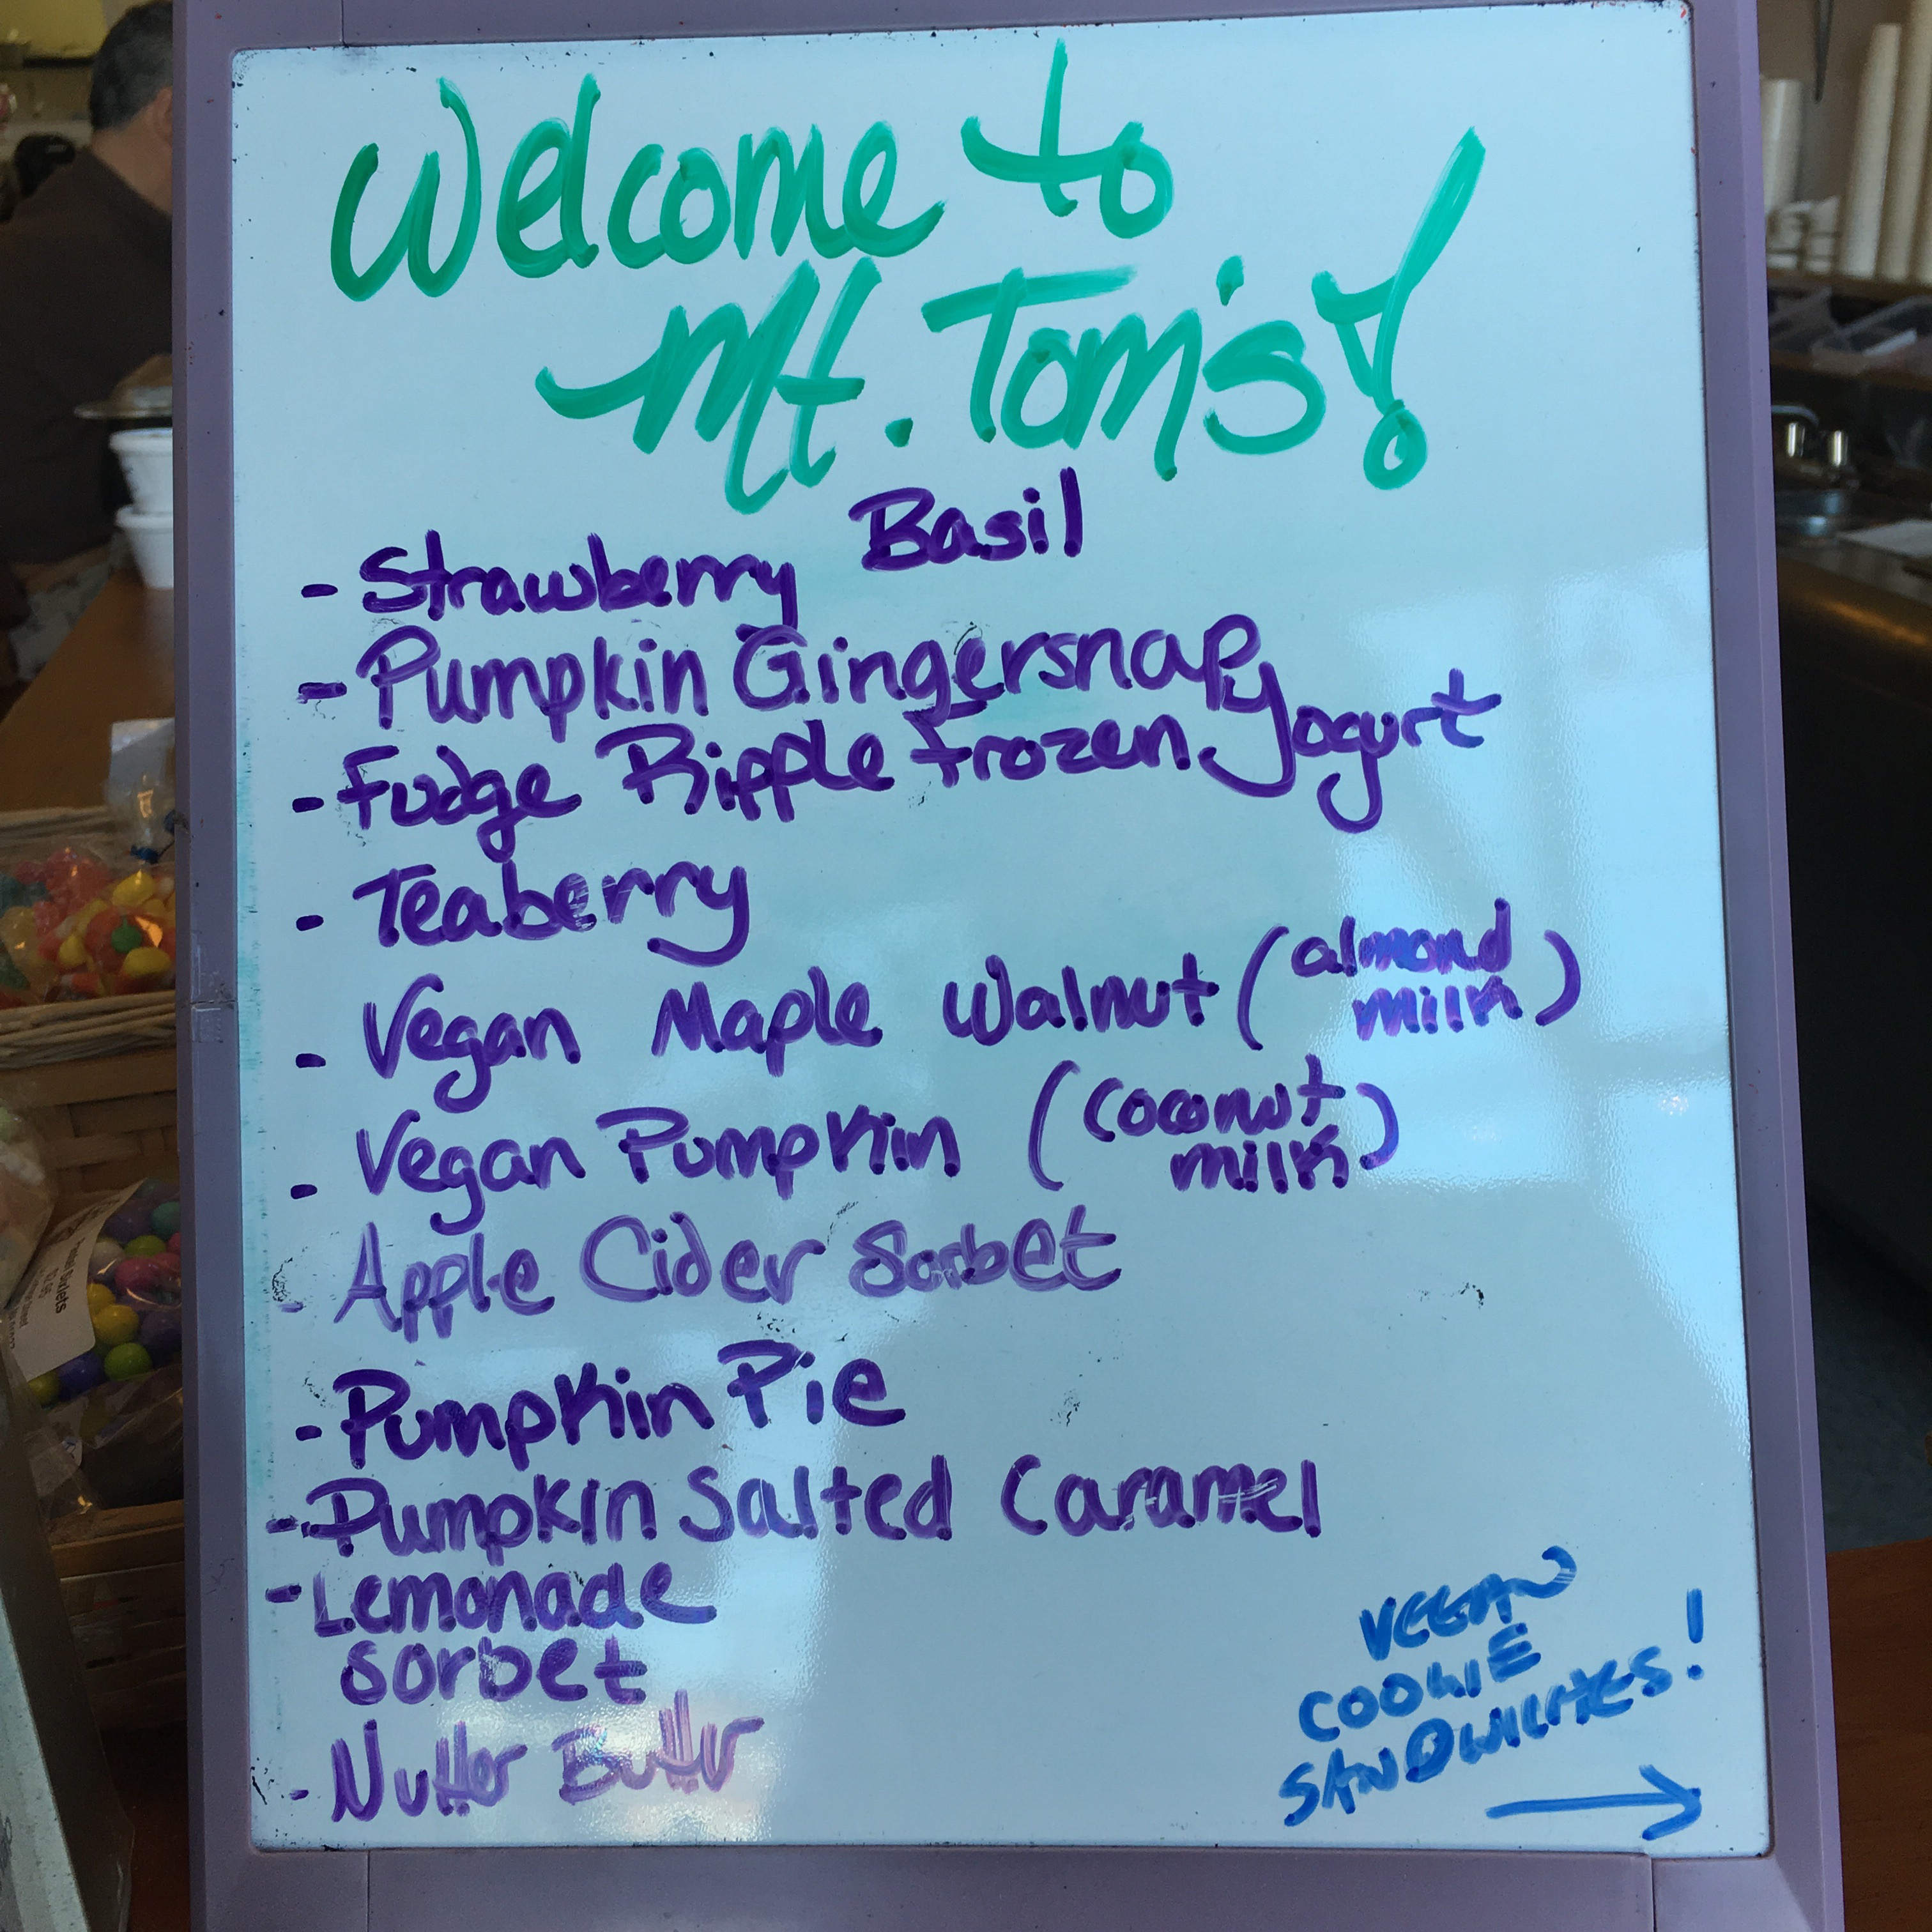 Welcome to
Mt. Tom's!
- Strawberry Basil
- Pumpkin Gingersnap
- Fudge Ripple frozen yogurt
- Teaberry
- Vegan Maple Walnut (almond
milk)
- Vegan Pumpkin (coconut
milk)
- Apple Cider Sorbet
- Pumpkin Pie
- Pumpkin Salted Caramel
- Lemonade
Sorbet
- Nutter Butter
VEGAN
COOKIE
SANDWICHES!
→